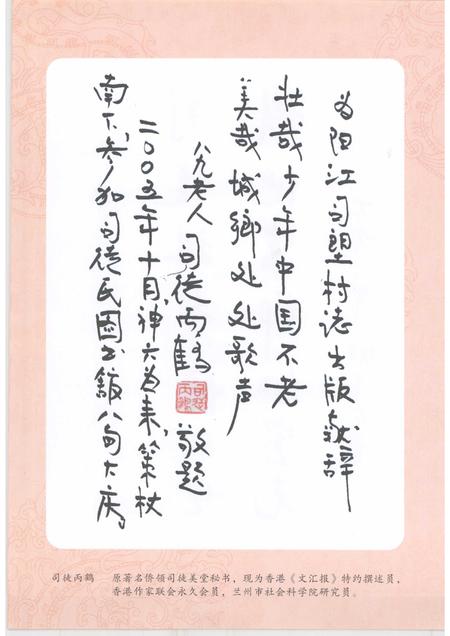 为阳江司塱村誌出版献辞
壮哉少年中国不老
美哉城鄉处处歌声
老人 司徒丙鶴 敬题
二〇〇五年十月,神六来,策杖
南下参加司徒氏图书舘八旬大庆。
司徒丙鹤 原著名侨领司徒美堂秘书，现为香港《文汇报》特约撰述员，
香港作家联会永久会员，兰州市社会科学院研究员。